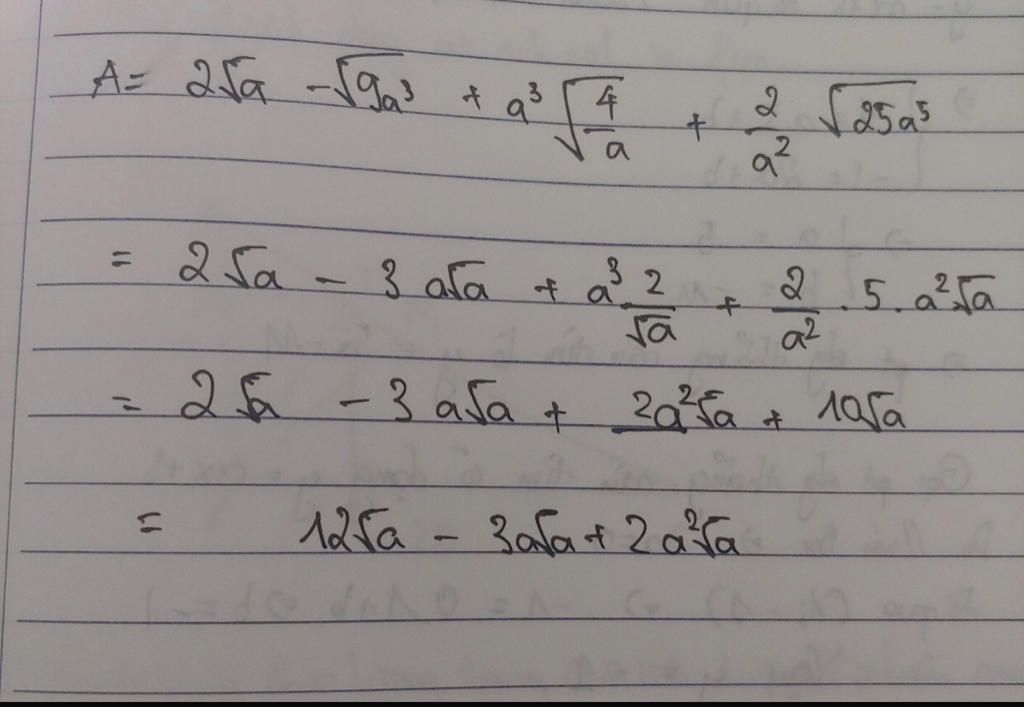 A = 2√a - √9a³ + a³ √(4/a) + 2/a² √25a⁵
= 2√a - 3a√a + a³ · 2/√a + 2/a² · 5 · a²√a
= 2√a - 3a√a + 2a²√a + 10√a
= 12√a - 3a√a + 2a²√a